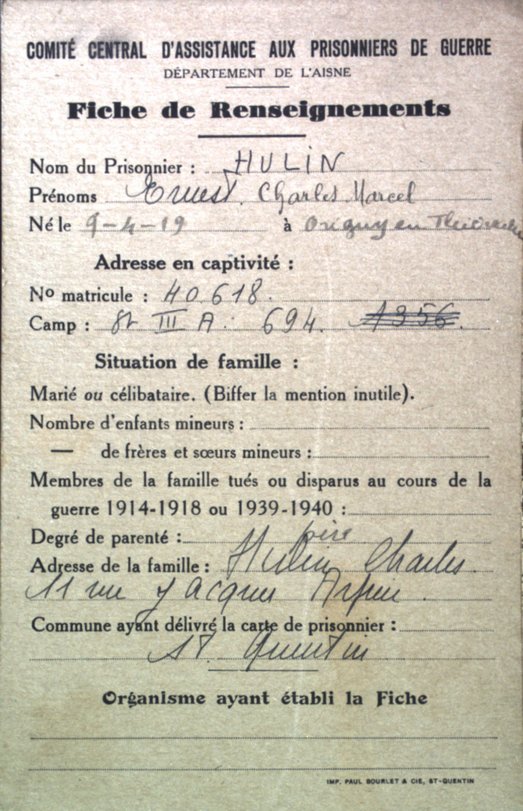 COMITÉ CENTRAL D'ASSISTANCE AUX PRISONNIERS DE GUERRE
DÉPARTEMENT DE L'AISNE
Fiche de Renseignements
Nom du Prisonnier : HULIN
Prénoms Ernest. Charles Marcel
Né le 9-4-19 à Origny en Thiérache
Adresse en captivité :
No matricule : 40.618.
Camp : St III A. 694. A356.
Situation de famille :
Marié ou célibataire. (Biffer la mention inutile).
Nombre d'enfants mineurs :
— de frères et sœurs mineurs :
Membres de la famille tués ou disparus au cours de la
guerre 1914-1918 ou 1939-1940 :
Degré de parenté : père
Adresse de la famille : Hulin Charles.
11 rue Jacques
Commune ayant délivré la carte de prisonnier :
St. Quentin
Organisme ayant établi la Fiche
IMP. PAUL BOURLET & CIE, ST-QUENTIN